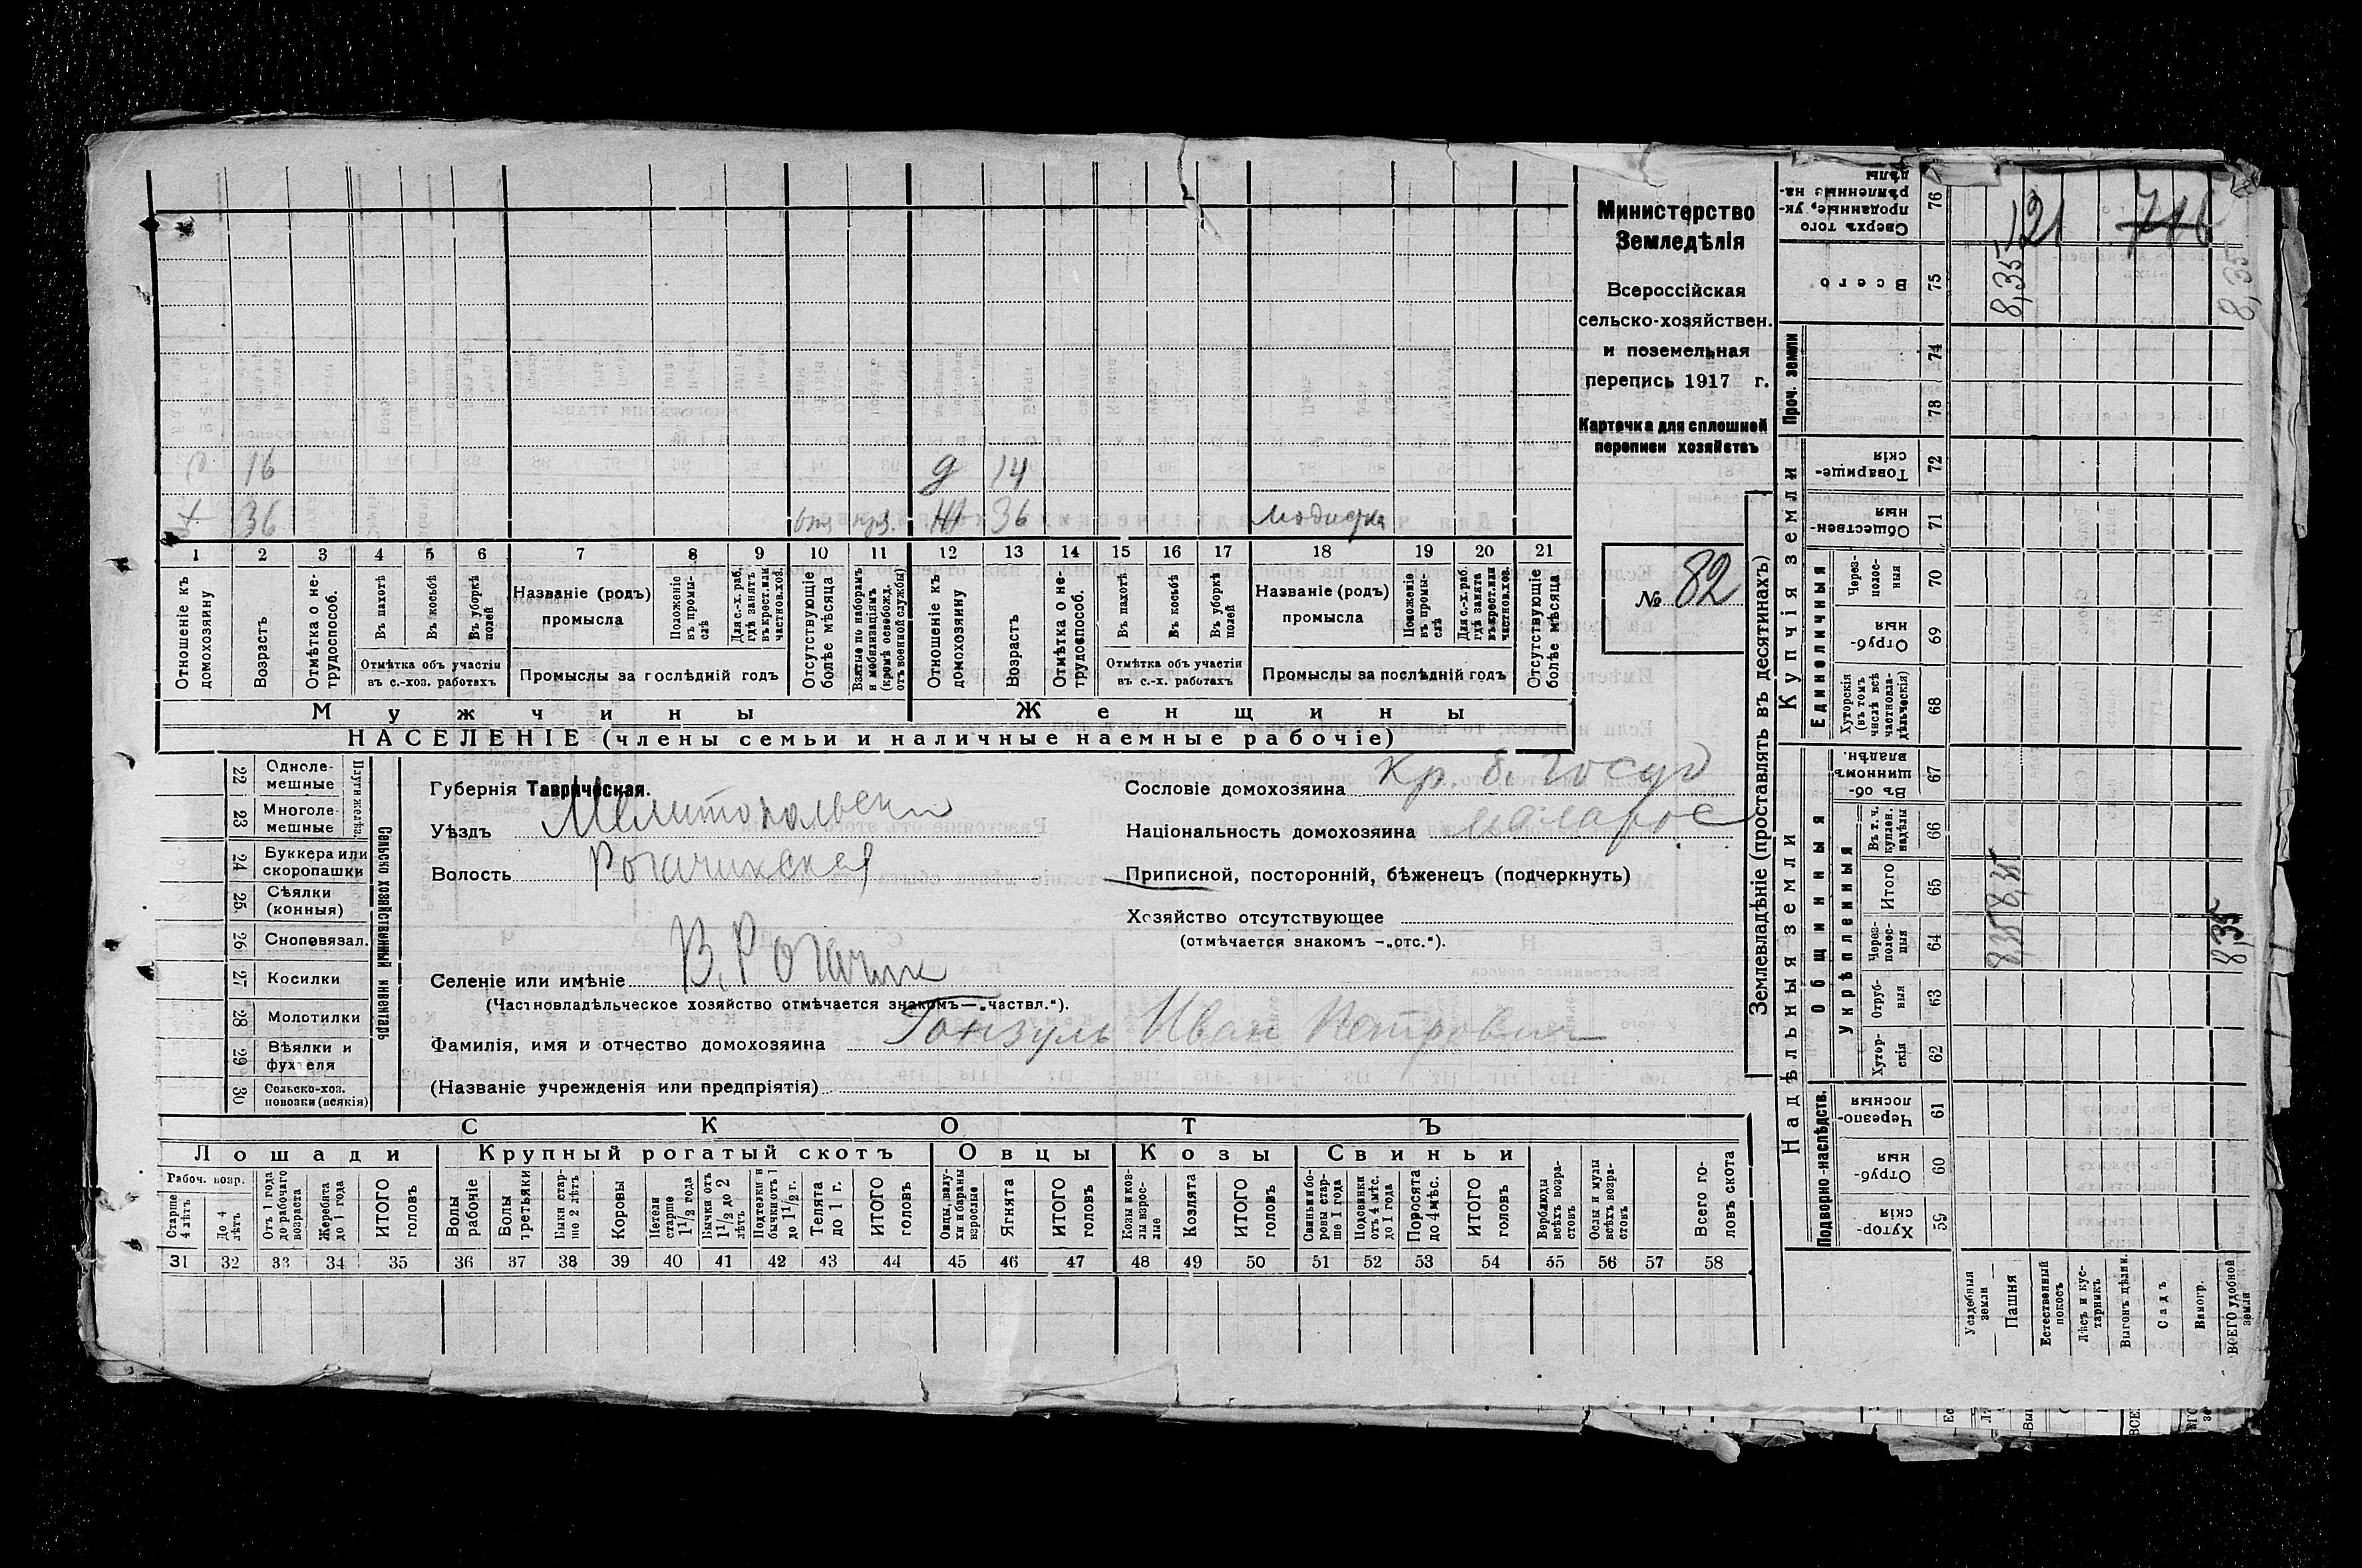 Министерство
Земледѣлія
Всероссійская
сельско-хозяйствен.
и поземельная
перепись 1917 г.
Карточка для сплошной
переписи хозяйствъ
№ 82
16
д 14
х 36
отс. ж 36 модистка
1 2 3 4 5 6 7 8 9 10 11 12 13 14 15 16 17 18 19 20 21
Отношеніе къ домохозяину
Возрастъ
Отмѣтка о не-трудоспособ.
Въ пахотѣ
Въ косьбѣ
Въ уборкѣ полей
Отмѣтка объ участіи
въ с.-хоз. работахъ
Названіе (родъ)
промысла
Положеніе въ промы-слѣ
Для с.-х. раб. гдѣ занятъ въ крест. или частнов. хоз.
Промыслы за послѣдній годъ
Отсутствующіе болѣе мѣсяца
Взятые по наборамъ и мобилизаціямъ (кромѣ освобожд. отъ военной службы)
Отношеніе къ домохозяину
Возрастъ
Отмѣтка о не-трудоспособ.
Въ пахотѣ
Въ косьбѣ
Въ уборкѣ полей
Отмѣтка объ участіи
въ с.-х. работахъ
Названіе (родъ)
промысла
Положеніе въ промы-слѣ
Для с.-х. раб. гдѣ занята въ крест. или частнов. хоз.
Промыслы за послѣдній годъ
Отсутствующіе болѣе мѣсяца
Мужчины Женщины
НАСЕЛЕНІЕ (члены семьи и наличные наемные рабочіе)
Сельско хозяйственный инвентарь
Плуги желѣз.
22 Одноле-мешные
23 Многоле-мешные
24 Буккера или скоропашки
25 Сѣялки (конныя)
26 Сноповязал.
27 Косилки
28 Молотилки
29 Вѣялки и фухтеля
30 Сельско-хоз. повозки (всякія)
Губернія Таврическая.
Уѣздъ Мелитопольски
Волость Рогачикская
Селеніе или имѣніе В. Рогачик
(Частновладѣльческое хозяйство отмѣчается знакомъ—„частвл.“).
Фамилія, имя и отчество домохозяина Гонзуль Иван Петрович
(Названіе учрежденія или предпріятія)
Сословіе домохозяина Кр. б. госуд
Національность домохозяина малорос
Приписной, посторонній, бѣженецъ (подчеркнуть)
Хозяйство отсутствующее
(отмѣчается знакомъ —„отс.“).
СКОТЪ
Лошади Крупный рогатый скотъ Овцы Козы Свиньи
Рабоч. возр.
Старше 4 лѣтъ
До 4 лѣтъ
Отъ 1 года до рабочаго возраста
Жеребята до 1 года
ИТОГО головъ
Волы рабочіе
Волы третьяки
Быки стар-ше 2 лѣтъ
Коровы
Нетели старше 1 1/2 года
Бычки отъ 1 1/2 до 2 лѣтъ
Подтелки и бычки отъ 1 до 1 1/2 г.
Телята до 1 г.
ИТОГО головъ
Овцы, валу-хи и бараны взрослые
Ягнята
ИТОГО головъ
Козы и коз-лы взрос-лые
Козлята
ИТОГО головъ
Свиньи и бо-ровы стар-ше 1 года
Подсвинки отъ 4 мѣс. до 1 года
Поросята до 4 мѣс.
ИТОГО головъ
Верблюды всѣхъ возра-стовъ
Ослы и мулы всѣхъ возра-стовъ
Всего го-ловъ скота
31 32 33 34 35 36 37 38 39 40 41 42 43 44 45 46 47 48 49 50 51 52 53 54 55 56 57 58
Землевладѣніе (проставлять въ десятинахъ)
Надѣльныя земли
Купчія земли
Проч. земли
Подворно-наслѣдств.
Общинныя
Укрѣпленныя
Единоличныя
Сверхъ того проданные, ук-рѣпленные на-дѣлы 76 121 716
Всего 75 8,35 8,35
74
78
Товарище-скія 72
Обществен-ныя 71
Через-полос-ныя 70
Отруб-ныя 69
Хуторскія (въ томъ числѣ всѣ частновла-дѣльческія) 68
Въ об-щинномъ владѣн. 67
Въ т. ч. куплен. надѣлы 66
Итого 65 8,35
Через-полос-ныя 64 8,35 8,35
Отруб-ныя 63
Хутор-скія 62
Черезпо-лосныя 61
Отруб-ныя 60
Хутор-скія 59
Усадебныя земли
Пашня
Естественный покосъ
Лѣсъ и кус-тарникъ
Выгонъ цѣлин.
Садъ
Виногр.
ВСЕГО удобной земли